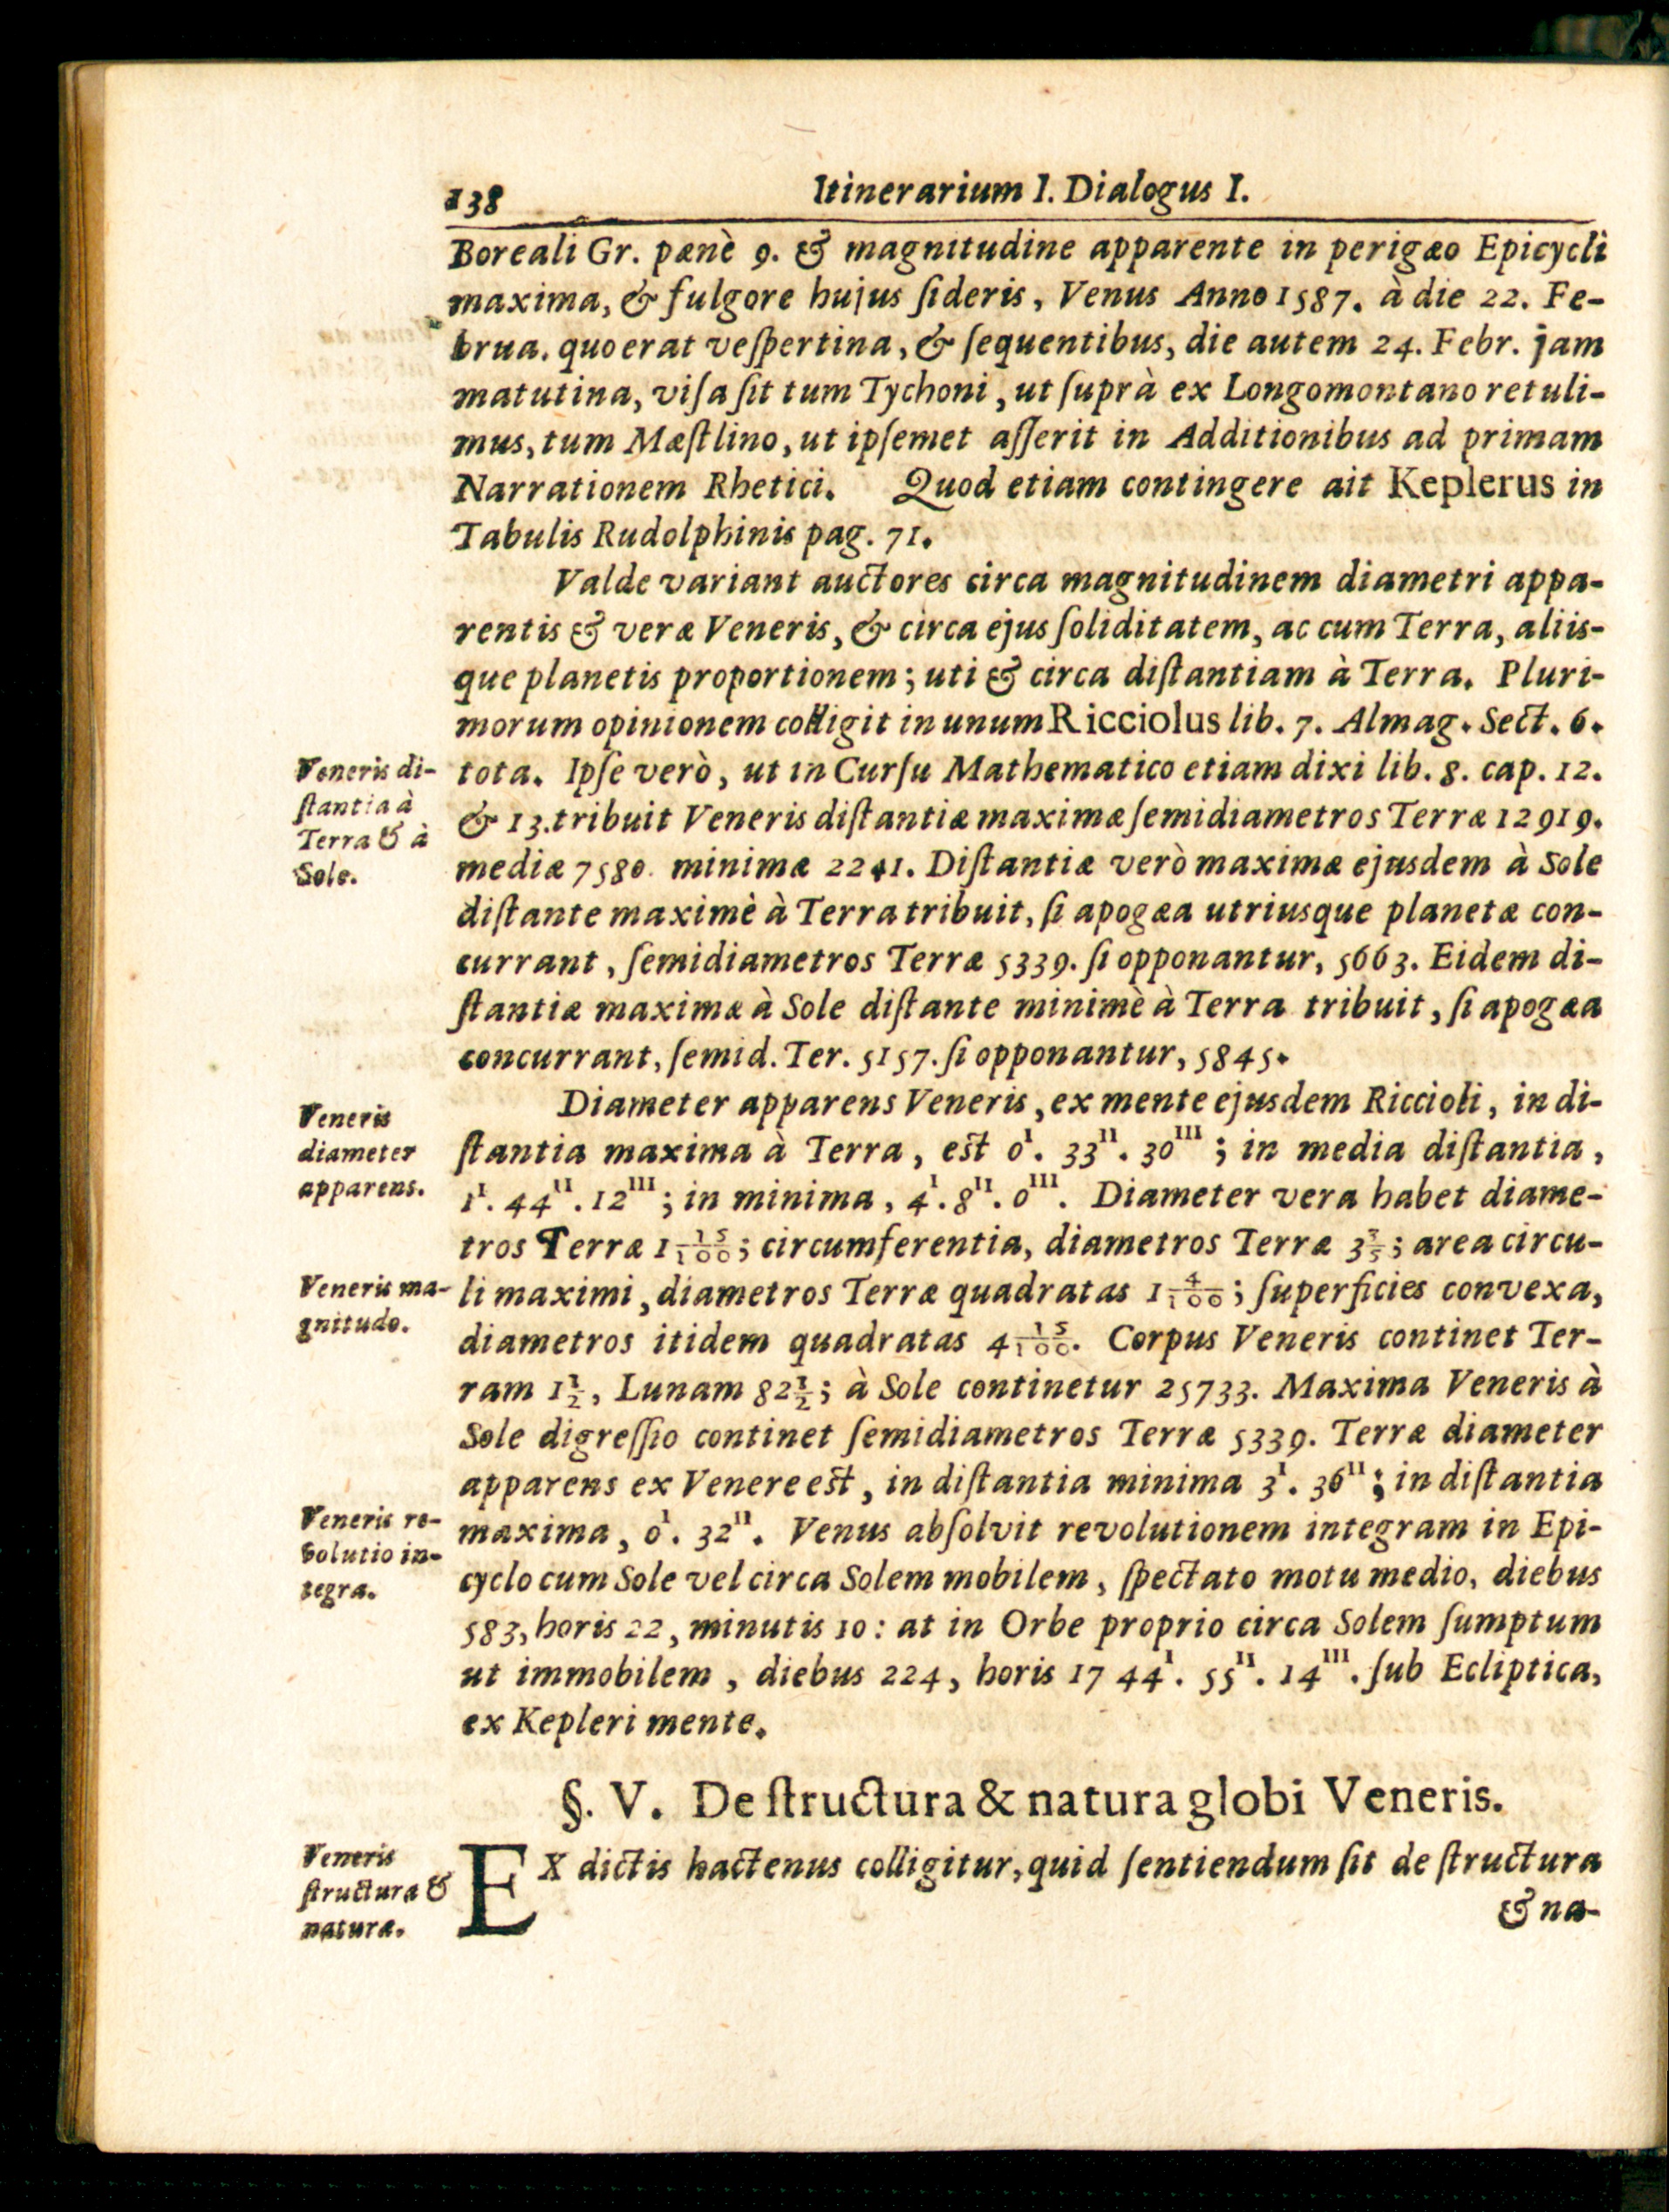 138 Itinerarium I. Dialogus I.
Boreali Gr. pænè 9. & magnitudine apparente in perigæo Epicycli
maxima, & fulgore hujus ſideris, Venus Anno 1587. à die 22. Fe-
brua. quo erat veſpertina, & ſequentibus, die autem 24. Febr. jam
matutina, viſa ſit tum Tychoni, ut ſuprà ex Longomontano retuli-
mus, tum Mæſtlino, ut ipſemet aſſerit in Additionibus ad primam
Narrationem Rhetici. Quod etiam contingere ait Keplerus in
Tabulis Rudolphinis pag. 71.
Valde variant auctores circa magnitudinem diametri appa-
rentis & veræ Veneris, & circa ejus ſoliditatem, ac cum Terra, aliis-
que planetis proportionem; uti & circa diſtantiam à Terra. Pluri-
morum opinionem colligit in unum Ricciolus lib. 7. Almag. Sect. 6.
Veneris di-
ſtantia à
Terra & à
Sole.
tota. Ipſe verò, ut in Curſu Mathematico etiam dixi lib. 8. cap. 12.
& 13. tribuit Veneris diſtantiæ maximæ ſemidiametros Terræ 12919.
mediæ 7580. minimæ 2241. Diſtantiæ verò maximæ ejusdem à Sole
diſtante maximè à Terra tribuit, ſi apogæa utriusque planetæ con-
currant, ſemidiametros Terræ 5339. ſi opponantur, 5663. Eidem di-
ſtantiæ maximæ à Sole diſtante minimè à Terra tribuit, ſi apogæa
concurrant, ſemid. Ter. 5157. ſi opponantur, 5845.
Veneris
diameter
apparens.
Diameter apparens Veneris, ex mente ejusdem Riccioli, in di-
ſtantia maxima à Terra, eſt 0ᴵ. 33ᴵᴵ. 30ᴵᴵᴵ; in media diſtantia,
1ᴵ. 44ᴵᴵ. 12ᴵᴵᴵ; in minima, 4ᴵ. 8ᴵᴵ. 0ᴵᴵᴵ. Diameter vera habet diame-
tros Terræ 1 15/100; circumferentia, diametros Terræ 3 3/5; area circu-
Veneris ma-
gnitudo.
li maximi, diametros Terræ quadratas 1 4/100; ſuperficies convexa,
diametros itidem quadratas 4 15/100. Corpus Veneris continet Ter-
ram 1 1/2, Lunam 82 1/2; à Sole continetur 25733. Maxima Veneris à
Sole digreſſio continet ſemidiametros Terræ 5339. Terræ diameter
apparens ex Venere eſt, in diſtantia minima 3ᴵ. 36ᴵᴵ; in diſtantia
Veneris re-
volutio in-
tegra.
maxima, 0ᴵ. 32ᴵᴵ. Venus abſolvit revolutionem integram in Epi-
cyclo cum Sole vel circa Solem mobilem, ſpectato motu medio, diebus
583, horis 22, minutis 10: at in Orbe proprio circa Solem ſumptum
ut immobilem, diebus 224, horis 17 44ᴵ. 55ᴵᴵ. 14ᴵᴵᴵ. ſub Ecliptica,
ex Kepleri mente.
§. V. De ſtructura & natura globi Veneris.
Veneris
ſtructura &
natura.
EX dictis hactenus colligitur, quid ſentiendum ſit de ſtructura
& na-